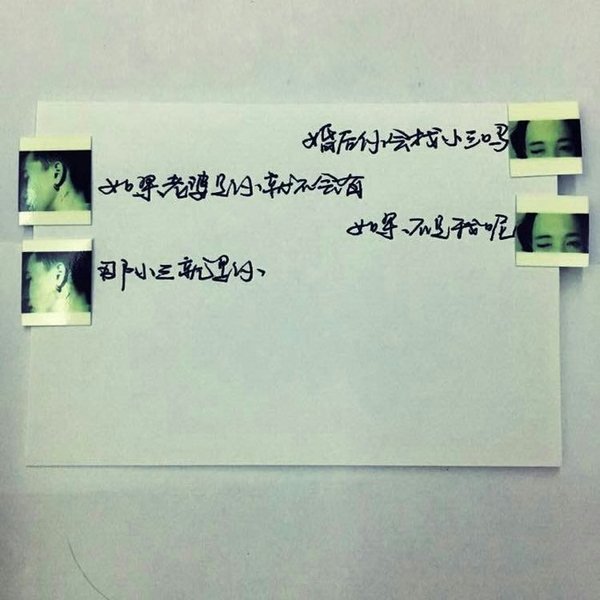 婚后你会找小三吗
如果老婆是你就不会有
如果不是我呢
那小三就是你